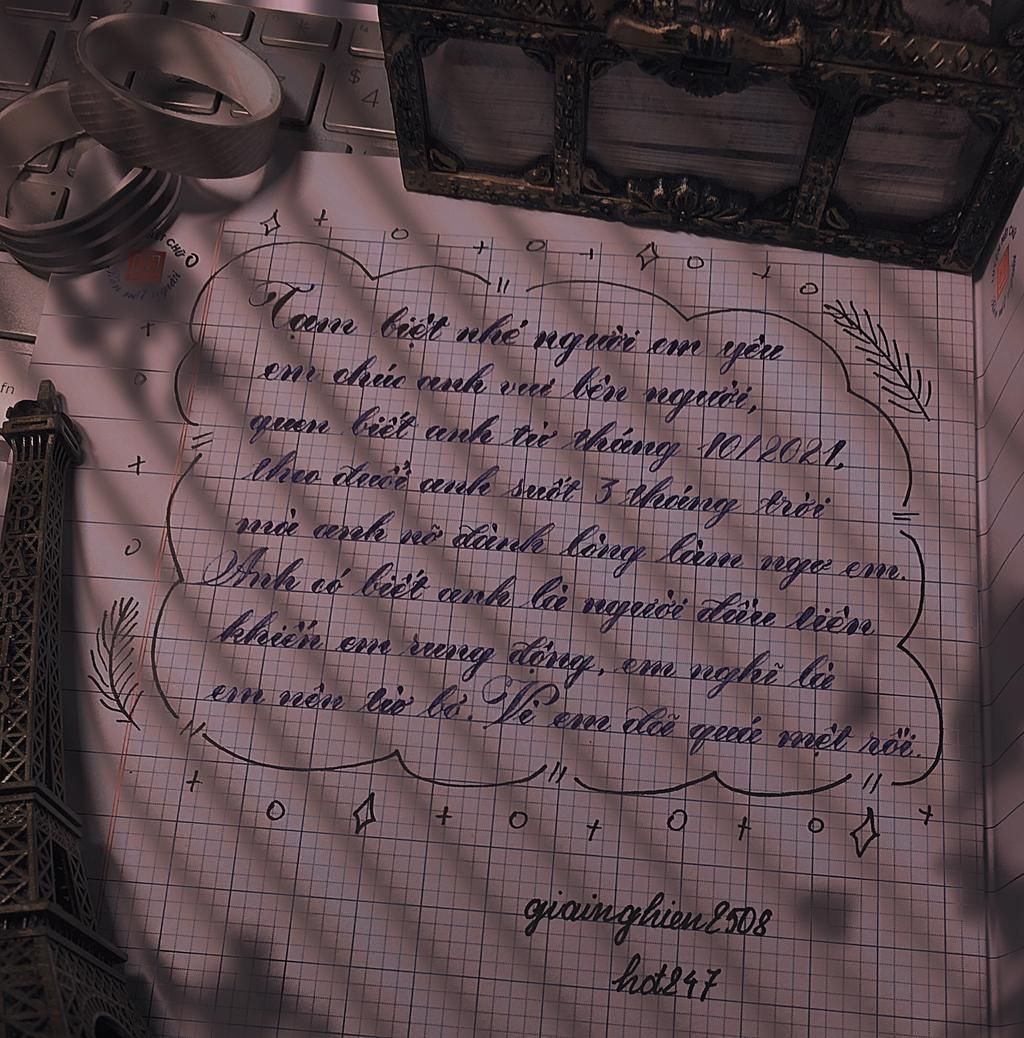 $
4
fn
PARIS
Tạm biệt nhé người em yêu
em chúc anh vui bên người,
quen biết anh từ tháng 10/2021,
theo đuổi anh suốt 3 tháng trời
mà anh nỡ đành lòng làm ngơ em.
Anh có biết anh là người đầu tiên
khiến em rung động, em nghĩ là
em nên từ bỏ. Vì em đã quá mệt rồi.
giainghien2508
hot247